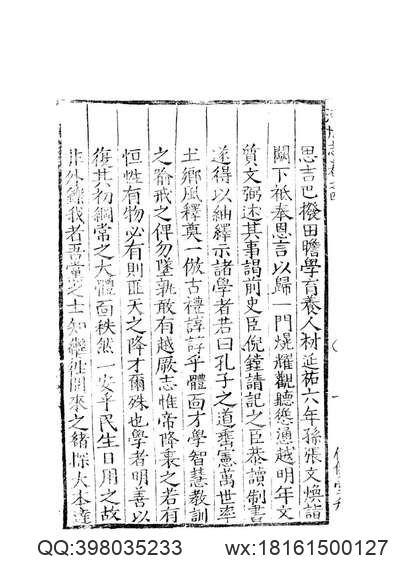 思吉巴撥田贍學育養人材延祐六年孫張文煥詣
闕下祗奉恩言以歸一門焜耀觀聽慫湧越明年文
質文弼述其事謁前史臣倪鏜請記之臣恭讀制書
遂得以紬繹示諸學者若曰孔子之道垂憲萬世率
土鄉風釋奠一倣古禮諄諄乎體而才學智慧教訓
之者戒之俾勿墜孰敢有越厥志惟帝降衷之若有
恒性有物必有則匪天之降才爾殊也學者明善以
復其初綱常之大體而秩然一安乎民生日用之故
非外鑠我者吾黨之士知繼往開來之緒悰大本達
QQ:398035233 wx:18161500127